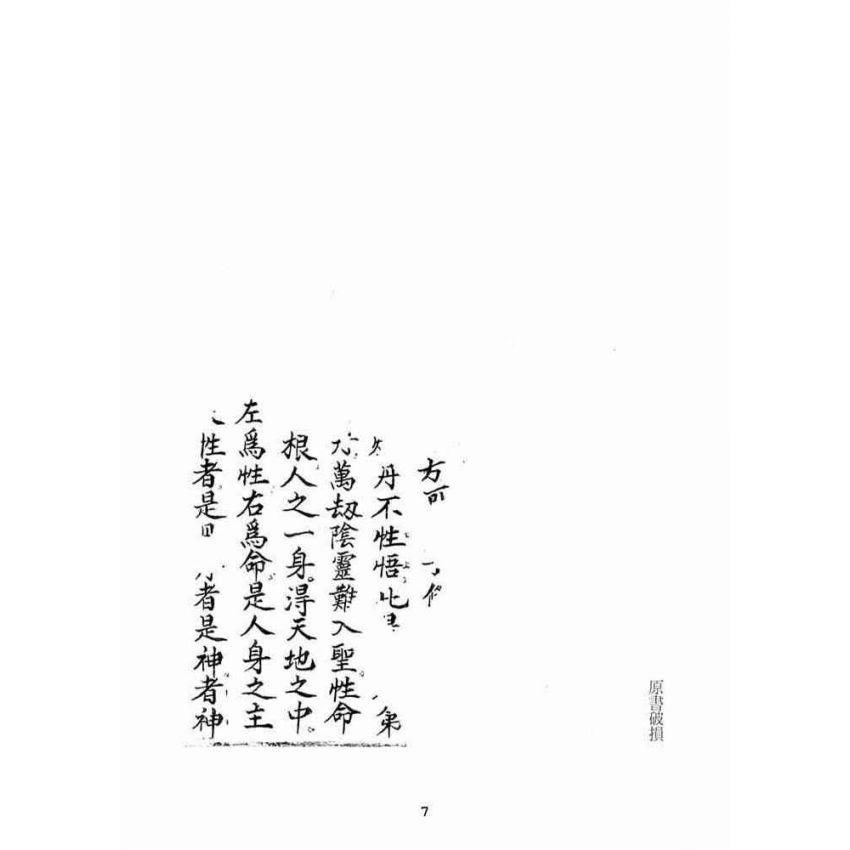 原書破損
方可
丹不性悟
萬刼陰靈難入聖性命
根人之一身淂天地之中
左爲性右爲命是人身之主
性者是 者是神者神
7